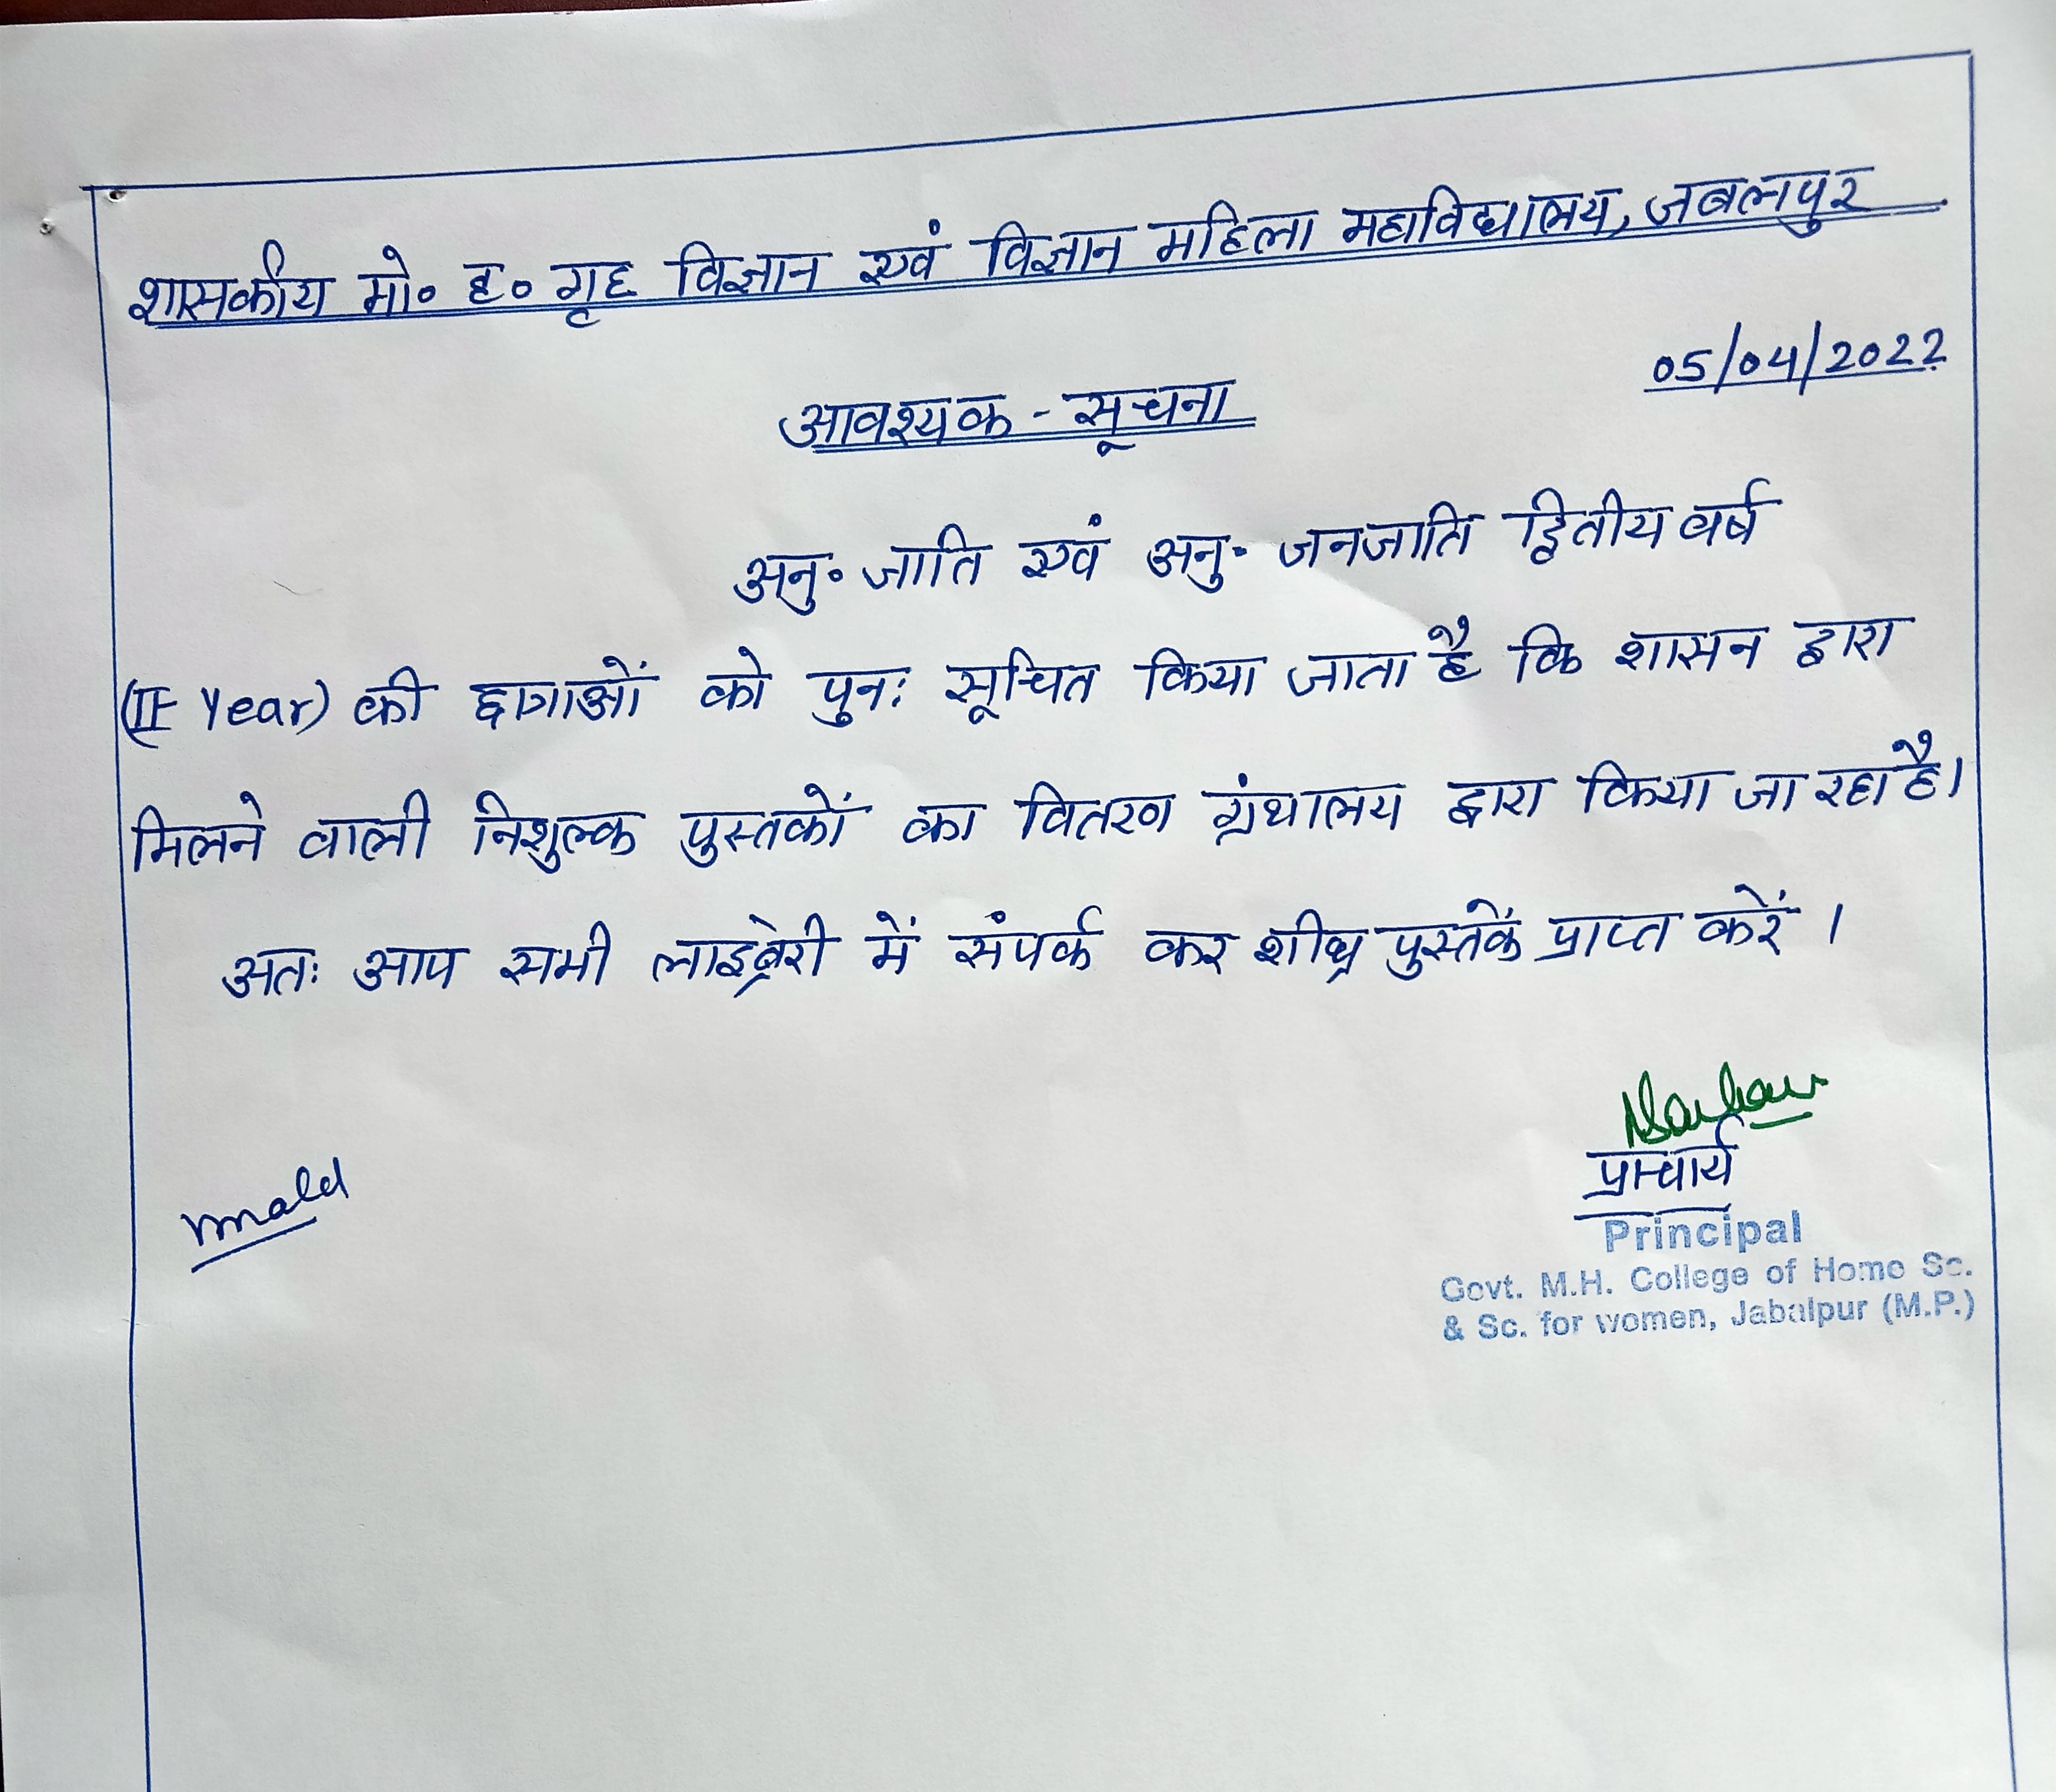 शासकीय मो॰ ह॰ गृह विज्ञान एवं विज्ञान महिला महाविद्यालय, जबलपुर
05/04/2022
आवश्यक - सूचना
अनु॰ जाति एवं अनु॰ जनजाति द्वितीय वर्ष
(II Year) की छात्राओं को पुनः सूचित किया जाता है कि शासन द्वारा
मिलने वाली निशुल्क पुस्तकों का वितरण ग्रंथालय द्वारा किया जा रहा है।
अतः आप सभी लाइब्रेरी में संपर्क कर शीघ्र पुस्तकें प्राप्त करें ।
प्राचार्य
Principal
Govt. M.H. College of Home Sc.
& Sc. for women, Jabalpur (M.P.)